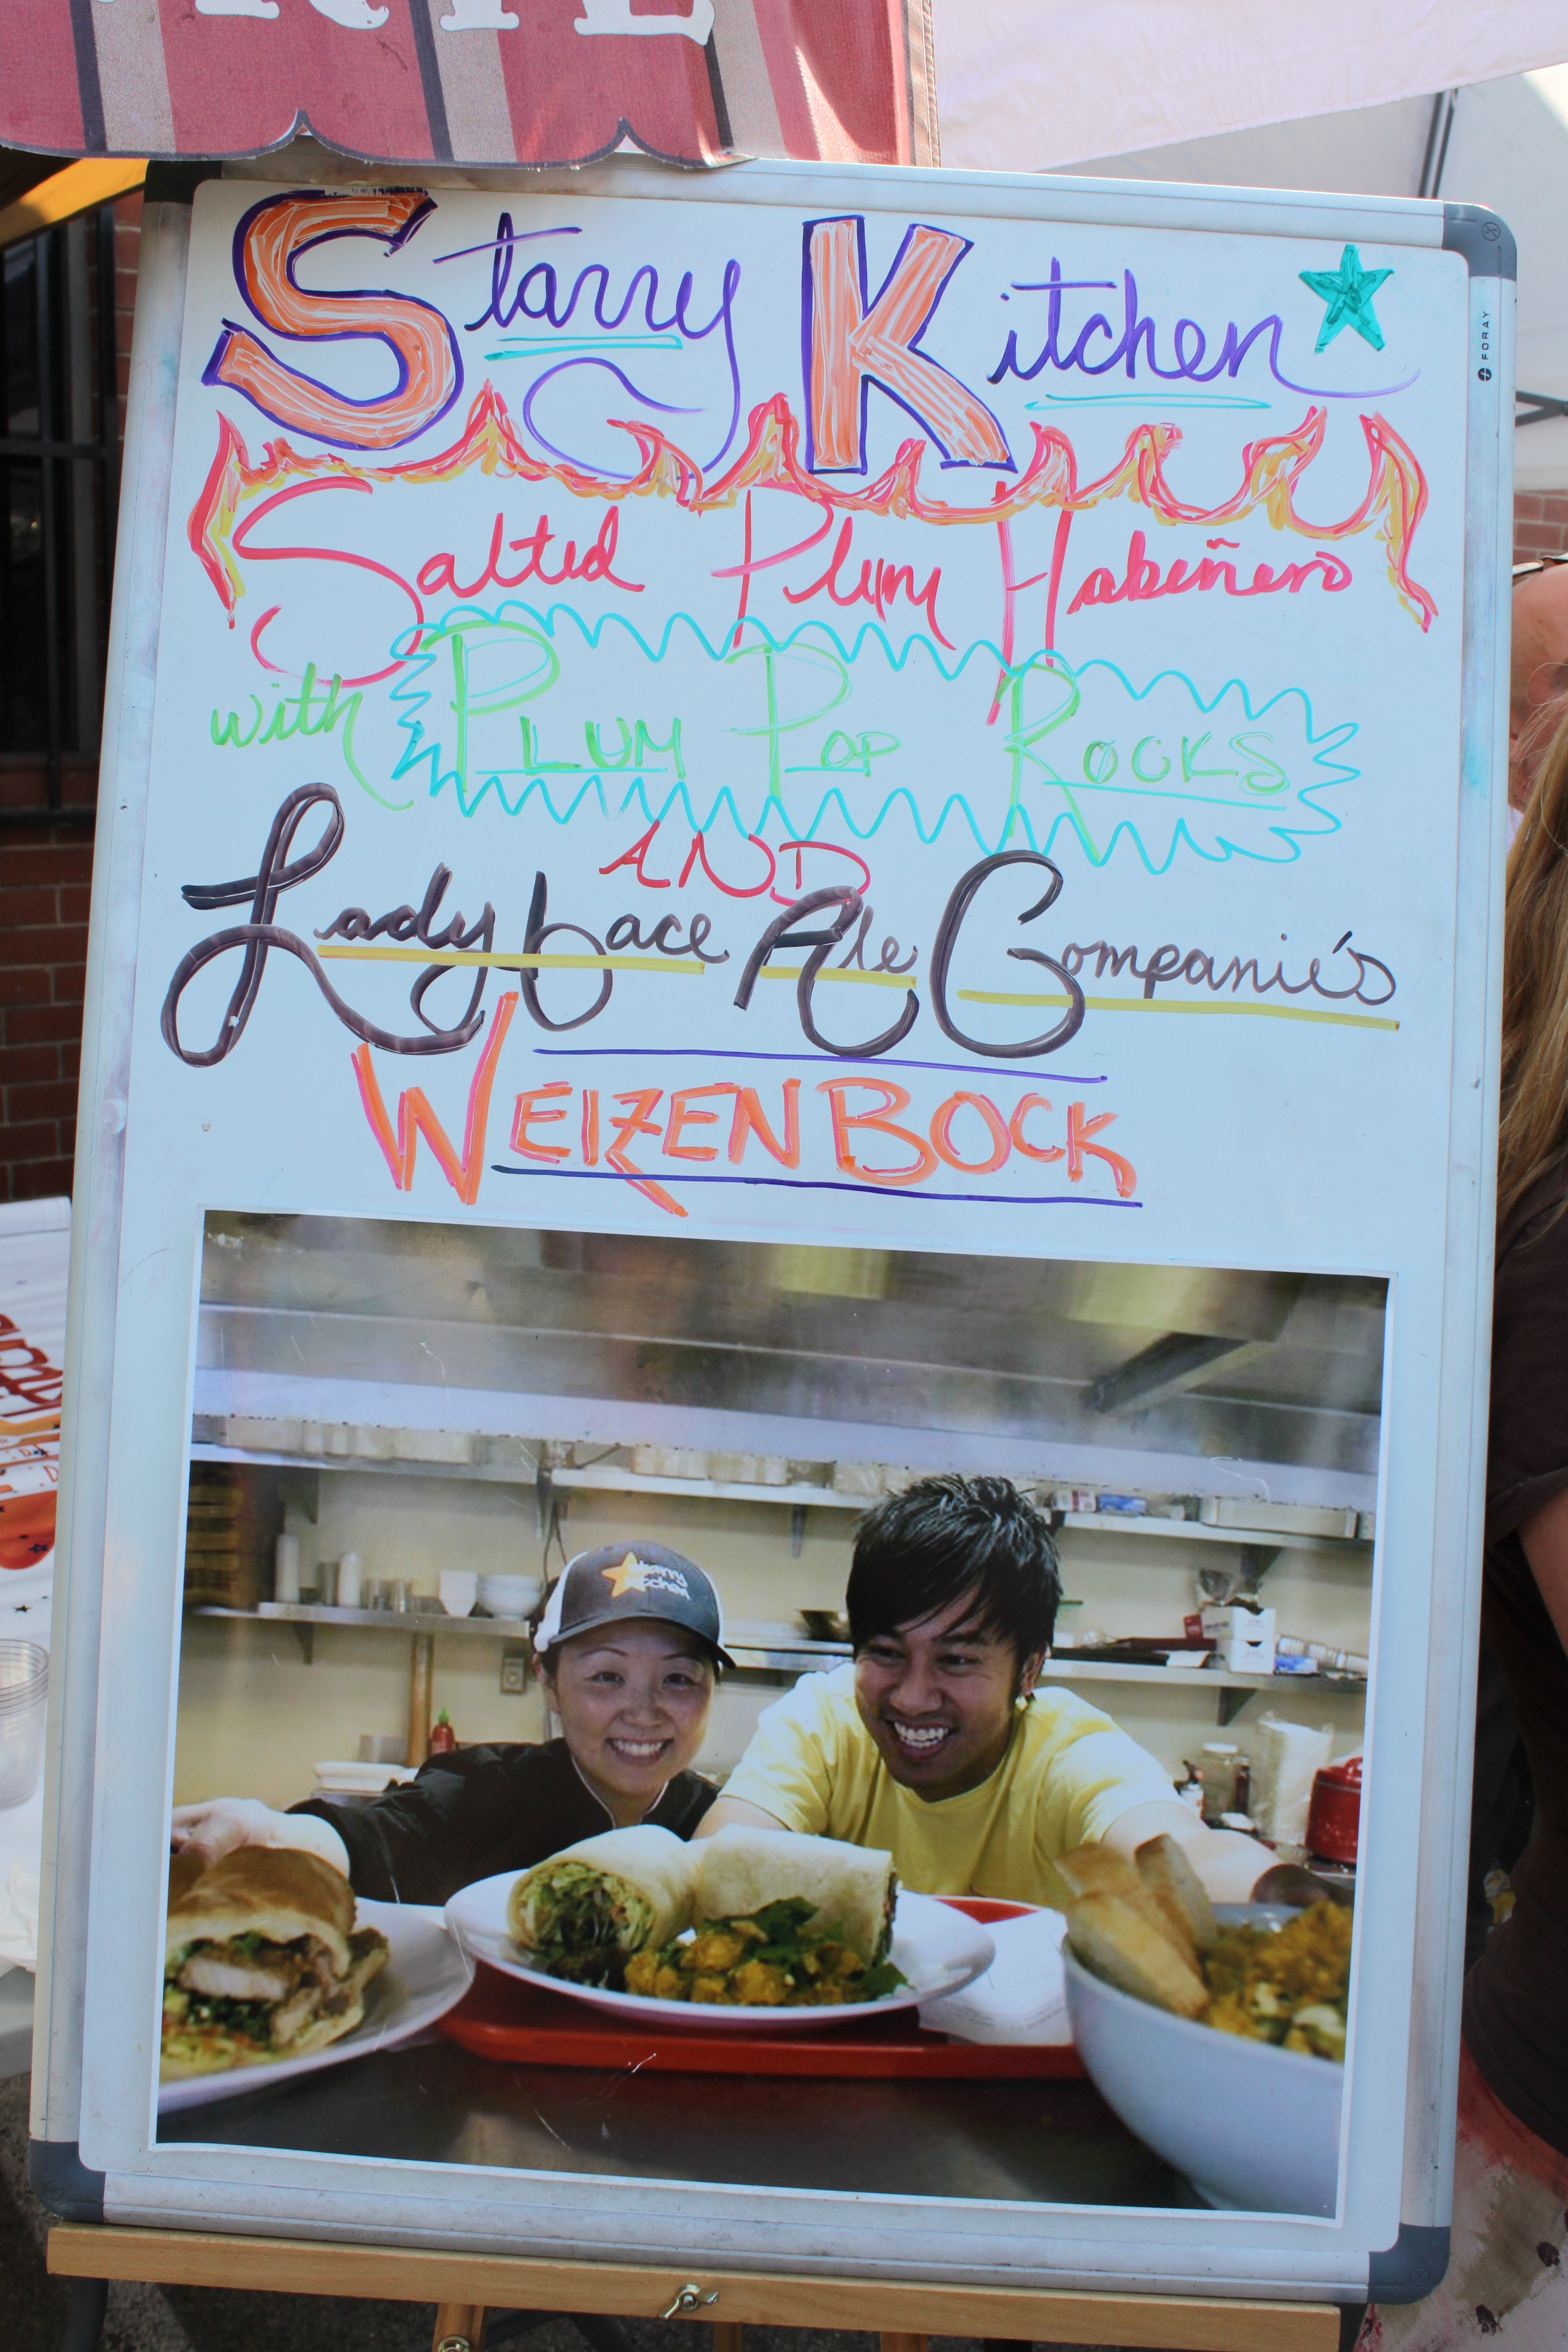 Starry Kitchen
Salted Plum Habeñero
with PLUM POP ROCKS
AND
Ladyface Ale Companie's
WEIZENBOCK
FORAY